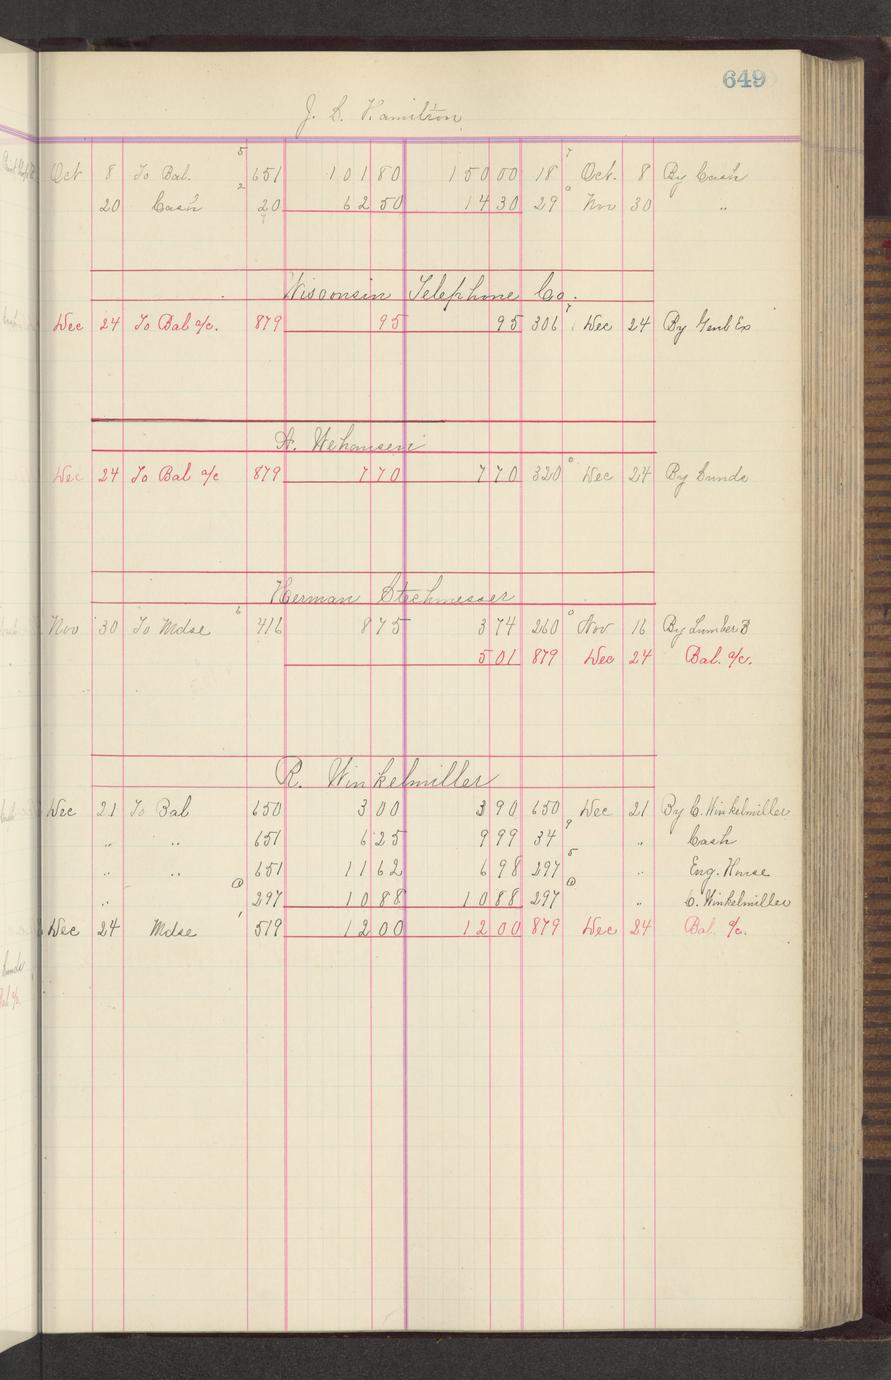 649
J. S. Hamilton
Oct 8 To Bal. 5 651 101 80 150 00 18 7 Oct. 8 By Cash
20 Cash 2 20 62 50 14 30 29 0 Nov 30 "
Wisconsin Telephone Co.
Dec 24 To Bal a/c. 879 95 95 306 7 Dec 24 By Genl Ex
A. Wehausen
Dec 24 To Bal a/c 879 7 70 7 70 320 0 Dec 24 By Sunds
Herman Stechmesser
Nov 30 To Mdse 6 416 8 75 3 74 260 0 Nov 16 By Lumber B
5 01 879 Dec 24 Bal. a/c.
R. Winkelmiller
Dec 21 To Bal 650 3 00 3 90 650 Dec 21 By C. Winkelmiller
" " 651 6 25 9 99 34 9 " Cash
" " 651 11 62 6 98 297 5 " Eng. House
" 297 10 88 10 88 297 " C. Winkelmiller
Dec 24 Mdse 1 519 12 00 12 00 879 Dec 24 Bal. a/c.